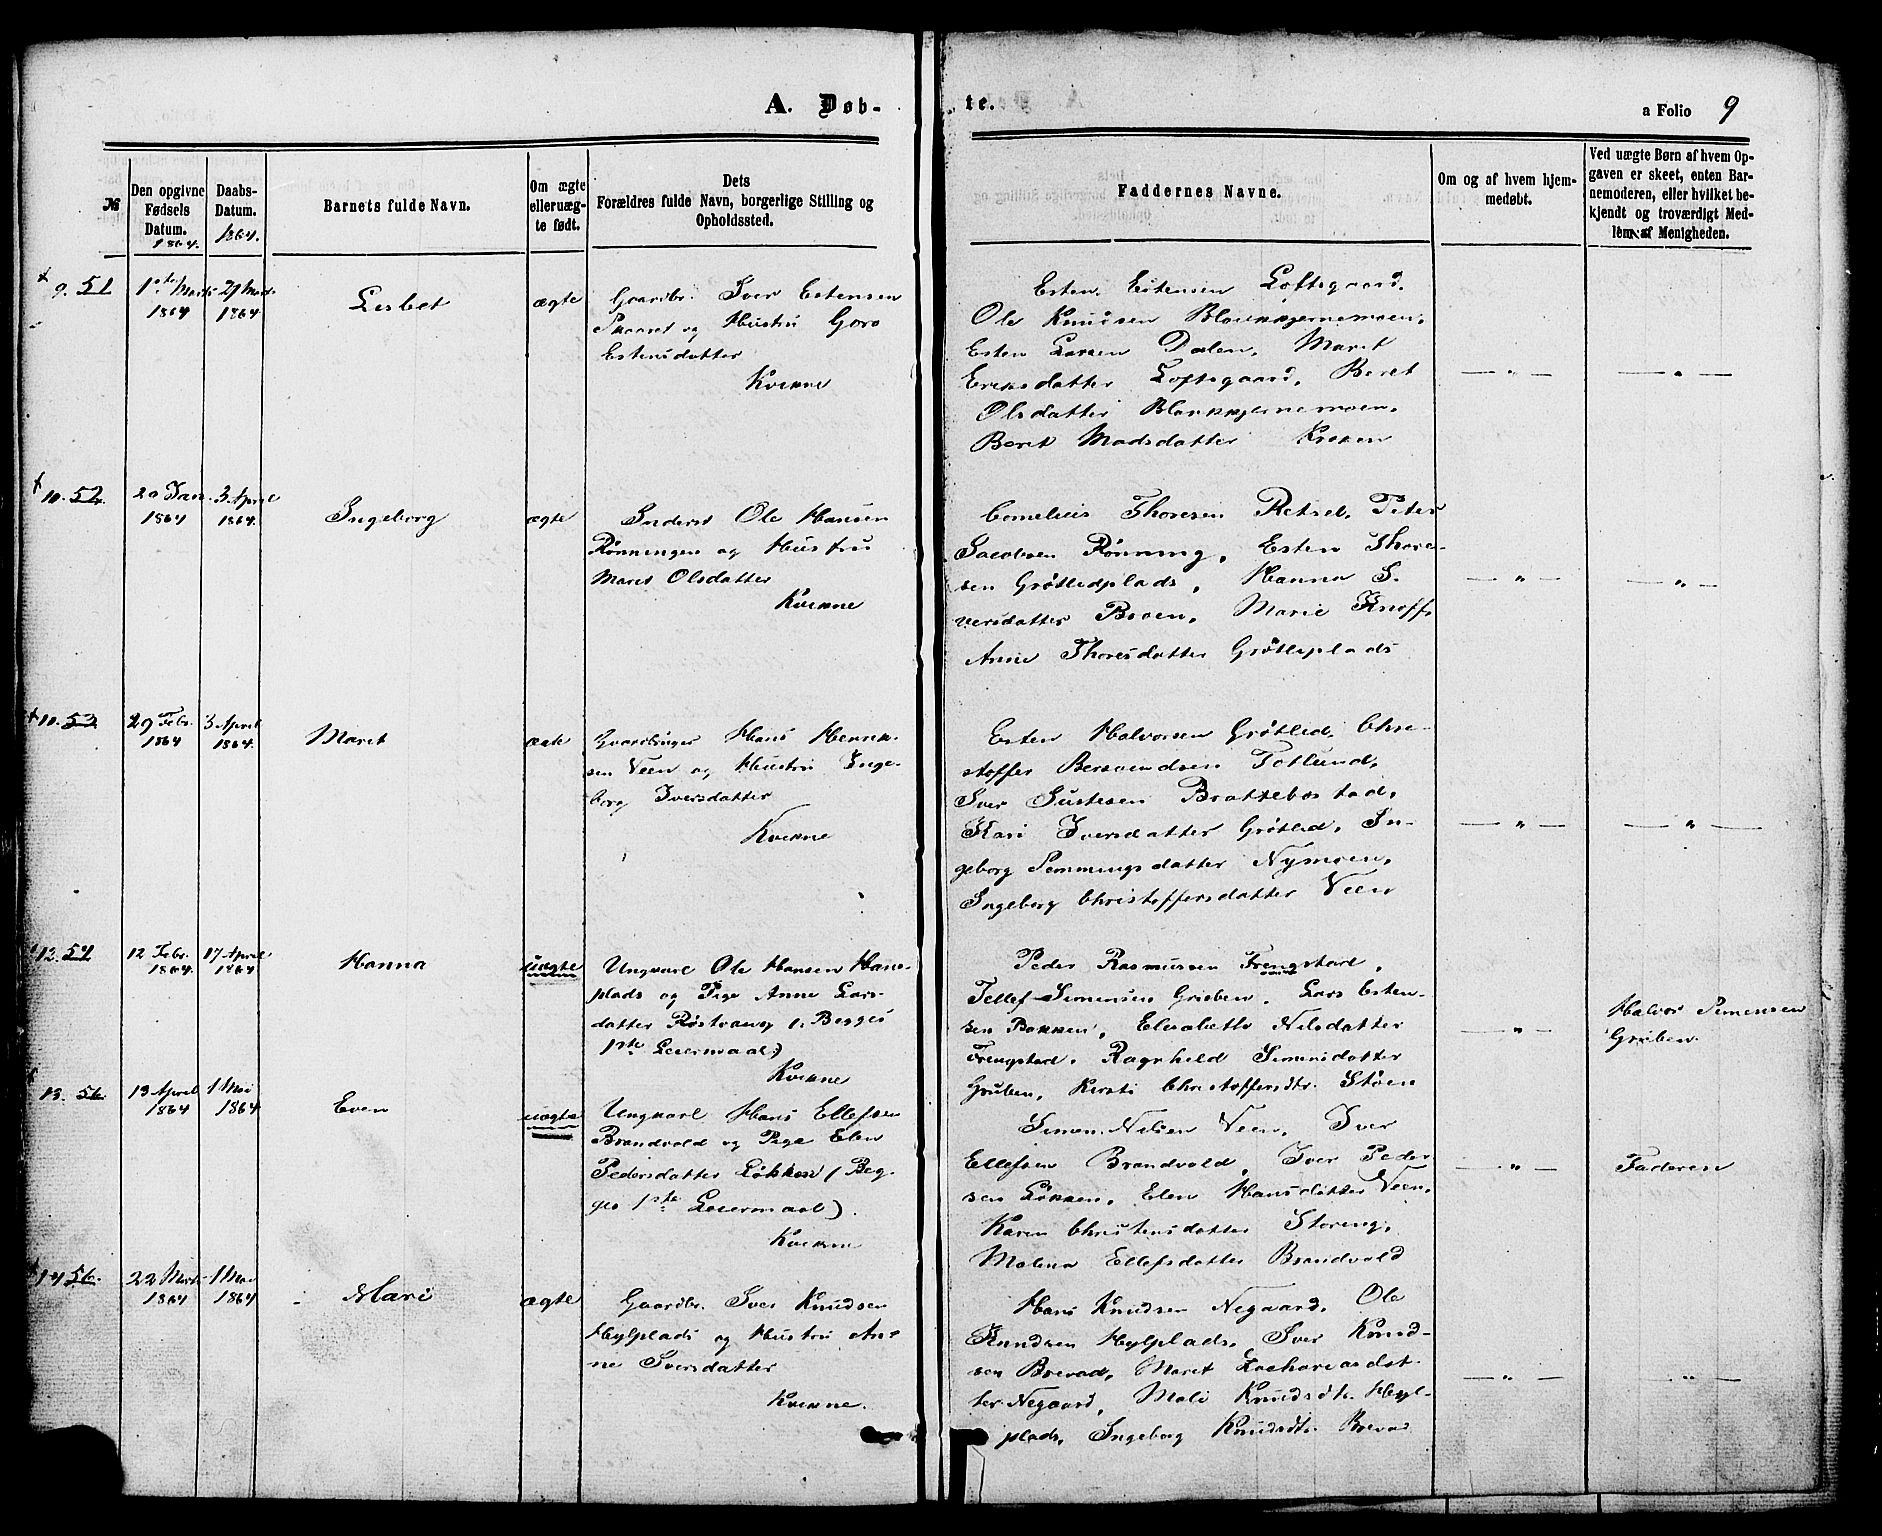 A. Døb-
te.
a Folio 9
№
Den opgivne
Fødsels
Datum.
1864.
Daabs-
Datum.
1864.
Barnets fulde Navn.
Om ægte
eller uæg-
te født.
Dets
Forældres fulde Navn, borgerlige Stilling og
Opholdssted.
Faddernes Navne.
Om og af hvem hjem-
medøbt.
Ved uægte Børn af hvem Op-
gaven er skeet, enten Bar-
nemoderen, eller hvilket be-
kjendt og troværdigt Med-
lem af Menigheden.
9. 51
1ste Marts
1864
29 Marts
1864
Lisbet
ægte
Gaardbr. Iver Estensen
Skaaret og Hustru Goro
Estensdatter
Kvikne
Esten Estensen Loftsgaard,
Ole Knudsen Blankkjernemoen,
Esten Larsen Dalen, Maret
Eriksdatter Loftsgaard, Beret
Olsdatter Blankkjernemoen,
Beret Madsdatter Kroken
— " —
— " —
10. 52
20 Jan.
1864
3 April
1864.
Ingeborg
ægte
Inderst Ole Hansen
Rønningen og Hustru
Maret Olsdatter
Kvikne
Cornelius Thoresen Peter
Jacobsen Rønning, Esten Thore-
sen Grøtlidplads, Hanna I-
versdatter Broen, Marie Knoff,
Anne Thoresdatter Grøtliplads
— " —
— " —
10. 53
29 Febr.
1864
3 April
1864.
Maret
ægte
Gaardbruger Hans Henrik-
sen Veen og Hustru Inge-
borg Iversdatter
Kvikne
Esten Halvorsen Grøtlid, Chri-
stoffer Bersvendsen Totlund,
Iver Justesen Brattebostad,
Kari Iversdatter Grøtlid, In-
geborg Semmingsdatter Nymoen,
Ingeborg Christoffersdatter Veen
— " —
— " —
12. 54
12 Febr.
1864
17 April
1864
Hanna
uægte
Ungkarl Ole Hansen Hans-
plads og Pige Anne Lars-
datter Røstvang (: Begges
1ste Leiermaal:)
Kvikne
Peder Rasmussen Frengstad,
Tellef Simensen Gruben, Lars Esten-
sen Bakken, Elisabeth Nilsdatter
Frengstad, Ragnhild Simensdatter
Gruben, Kirsti Christoffersdtr. Støen
— " —
Halvor Simensen
Gruben
13. 55
13 April
1864
1 Mai
1864
Even
uægte
Ungkarl Hans Ellefsen
Brandvold og Pige Elen
Pedersdatter Løkken (Beg-
ges 1ste Leiermaal).
Kvikne
Simen Nilsen Veen, Iver
Ellefsen Brandvold, Iver Peder-
sen Løkken, Elen Hansdatter Veen,
Karen Christensdatter Storeng,
Malena Ellefsdatter Brandvold
— " —
Faderen
14 56.
22 Marts
1864
1 Mai
1864
Mari
ægte
Gaardbr. Iver Knudsen
Hylplads og Hustru An-
ne Iversdatter
Kvikne.
Hans Knudsen Negaard, Ole
Knudsen Hylplads, Iver Knud-
sen Brevad, Maret Zachariasdat-
ter Negaard, Mali Knudsdtr. Hyl-
plads, Ingeborg Knudsdtr. Brevad
— " —
— " —